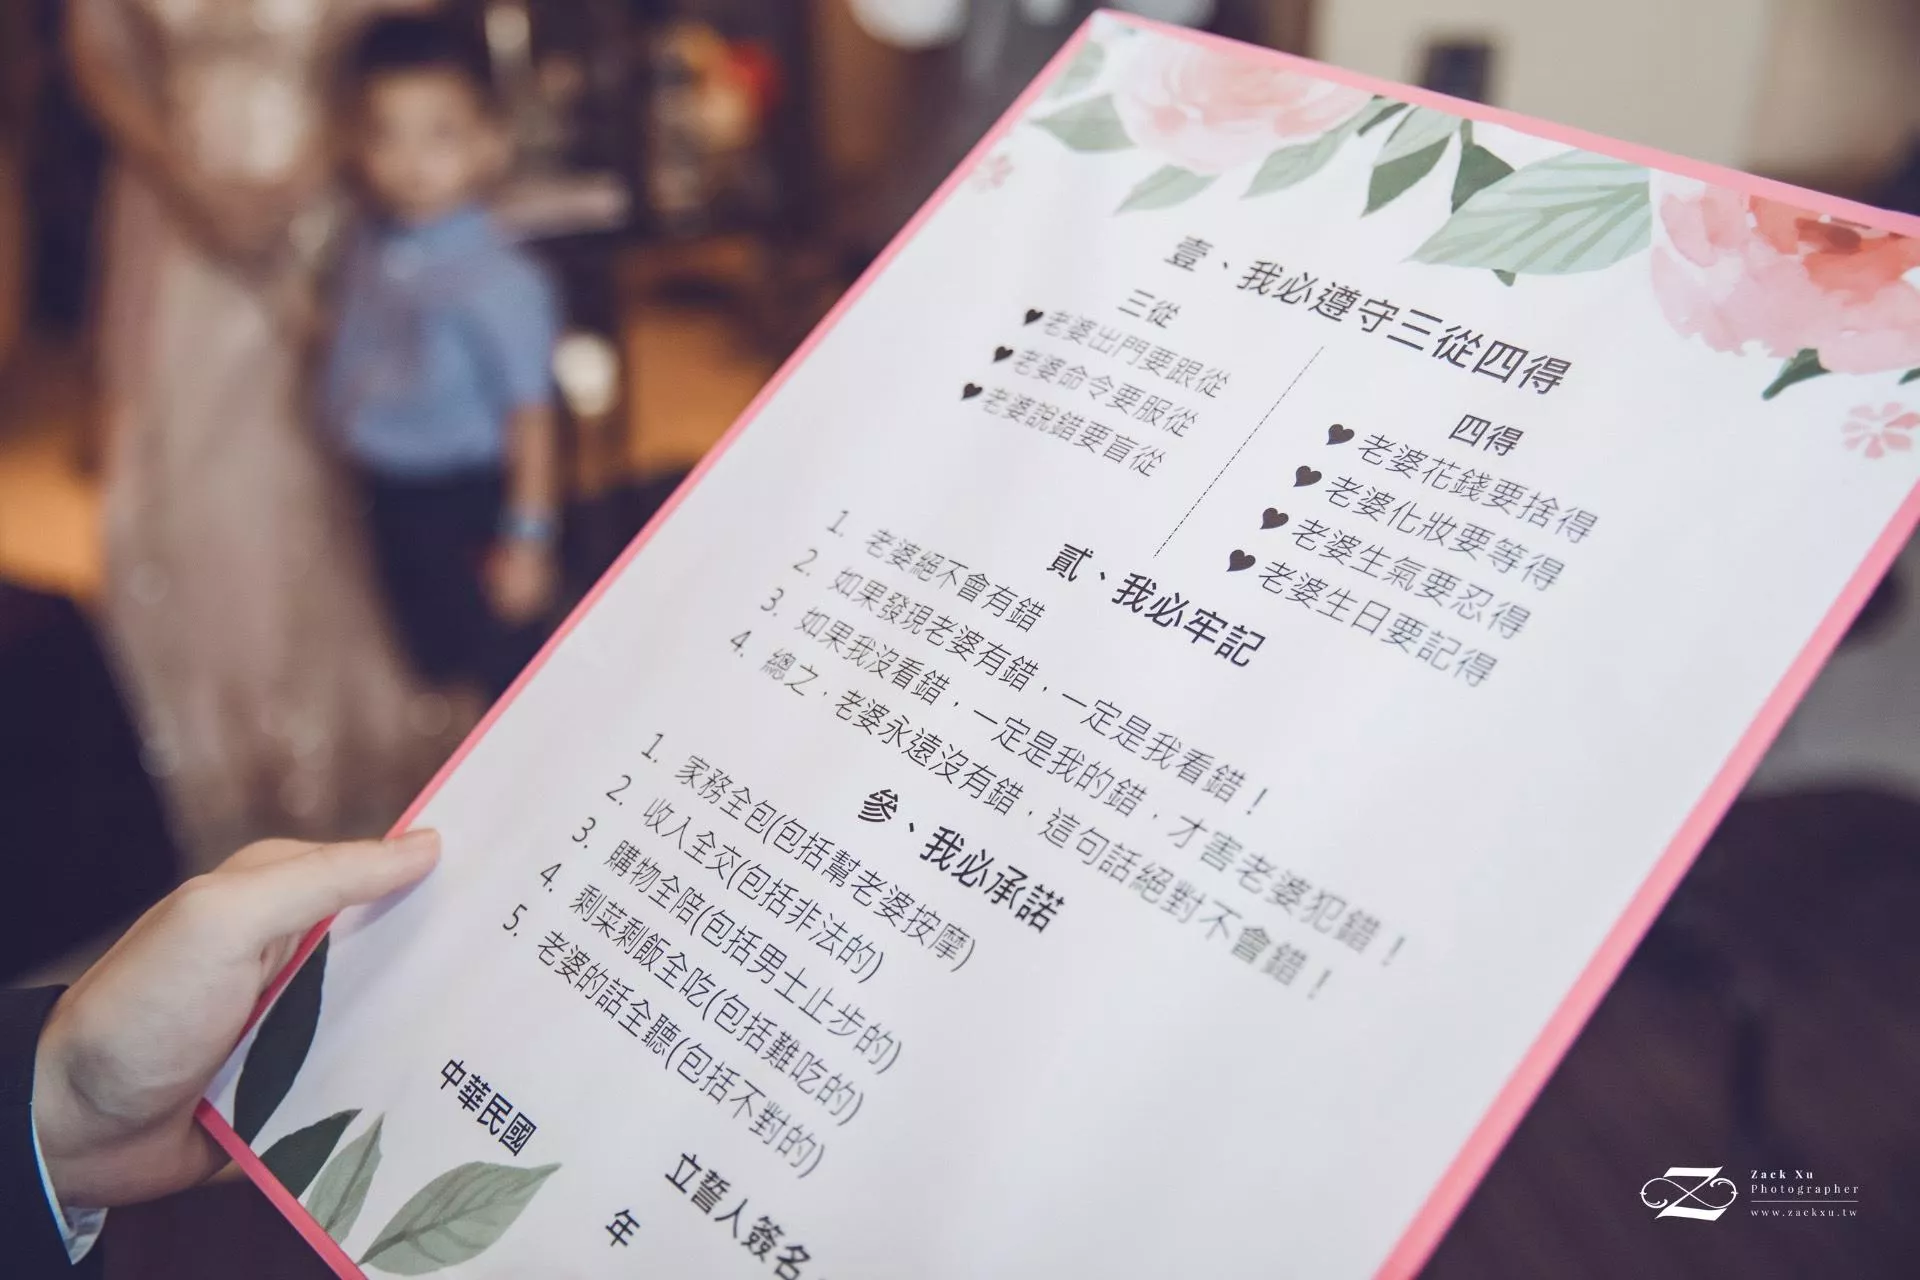 壹、我必遵守三從四得
三從
♥老婆出門要跟從
♥老婆命令要服從
♥老婆說錯要盲從
四得
♥老婆花錢要捨得
♥老婆化妝要等得
♥老婆生氣要忍得
♥老婆生日要記得
貳、我必牢記
1. 老婆絕不會有錯
2. 如果發現老婆有錯，一定是我看錯！
3. 如果我沒看錯，一定是我的錯，才害老婆犯錯！
4. 總之，老婆永遠沒有錯，這句話絕對不會錯！
參、我必承諾
1. 家務全包(包括幫老婆按摩)
2. 收入全交(包括非法的)
3. 購物全陪(包括男士止步的)
4. 剩菜剩飯全吃(包括難吃的)
5. 老婆的話全聽(包括不對的)
立誓人簽名
中華民國 年
Zack Xu
Photographer
www.zackxu.tw